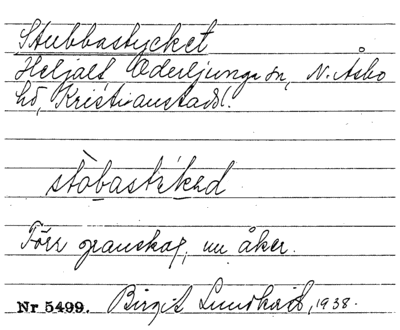 Stubbastycket
Heljalt Oderljunga sn, N. Åsbo
hd, Kristianstads l.
stòbastỳkəd
Förr granskog, nu åker.
Nr 5499. Birgit Lundkvist, 1938.